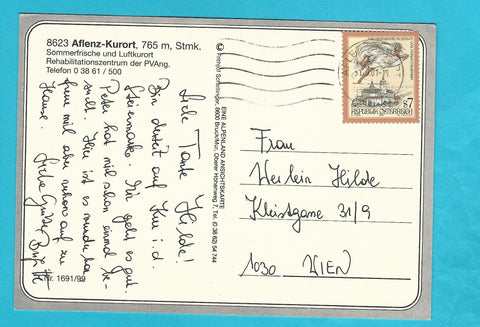 8623 Aflenz-Kurort, 765 m, Stmk.
Sommerfrische und Luftkurort
Rehabilitationszentrum der PVAng.
Telefon 0 38 61 / 500
Liebe Tante Hilde!
Bin derzeit auf Kur i.d.
Steiermark. Mir geht es gut.
Peter hat mich schon einmal be-
sucht. Hier ist es wunderba
freue mich aber schon auf zu
Hause. Liebe Grüße
Nr. 1691/99
EINE ALPENLAND ANSICHTSKARTE
8600 Bruck/Mur, Oberer Höhenweg 7, Tel. (0 38 62) 54 744
S7
Frau
Herlein Hilde
Kleistgasse 31/9
1030 WIEN